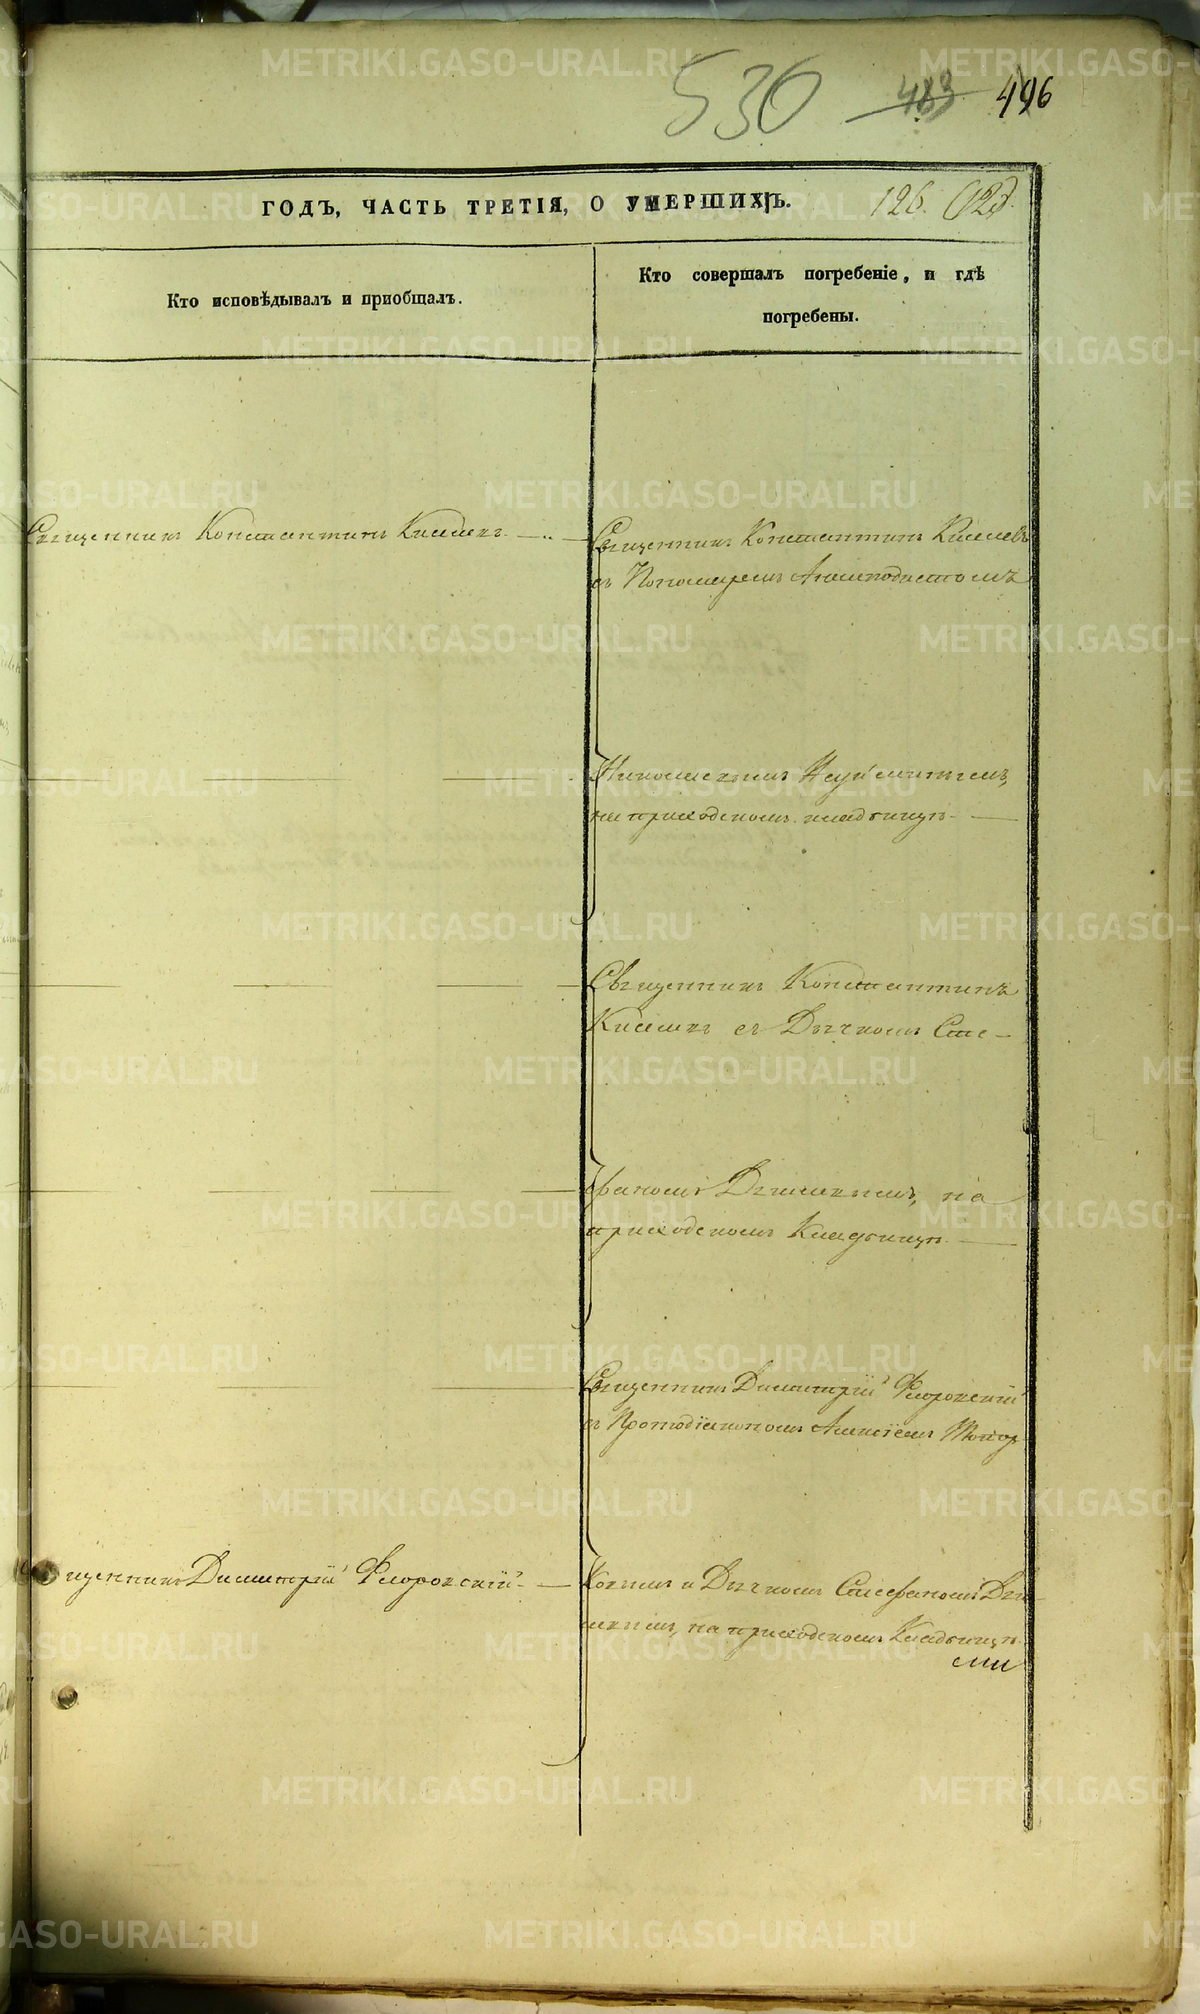 530 483 496
ГОДЪ, ЧАСТЬ ТРЕТІЯ, О УМЕРШИХЪ. 126.
Кто исповѣдывалъ и приобщалъ.
Кто совершалъ погребеніе, и гдѣ
погребены.
Священникъ Константинъ Киселевъ
Священникъ Константинъ Киселевъ
съ Пономаремъ Анемподистомъ
на приходскомъ кладбищѣ.
Священникъ Константинъ
Киселевъ съ Дьячкомъ Сте-
фаномъ на
приходскомъ Кладбищѣ.
Священникъ Димитрій Флоровскій
съ Протодіакономъ Алексіемъ
Священникъ Димитрій Флоровскій.
и Дьячкомъ Стефаномъ
на приходскомъ Кладбищѣ
METRIKI.GASO-URAL.RU